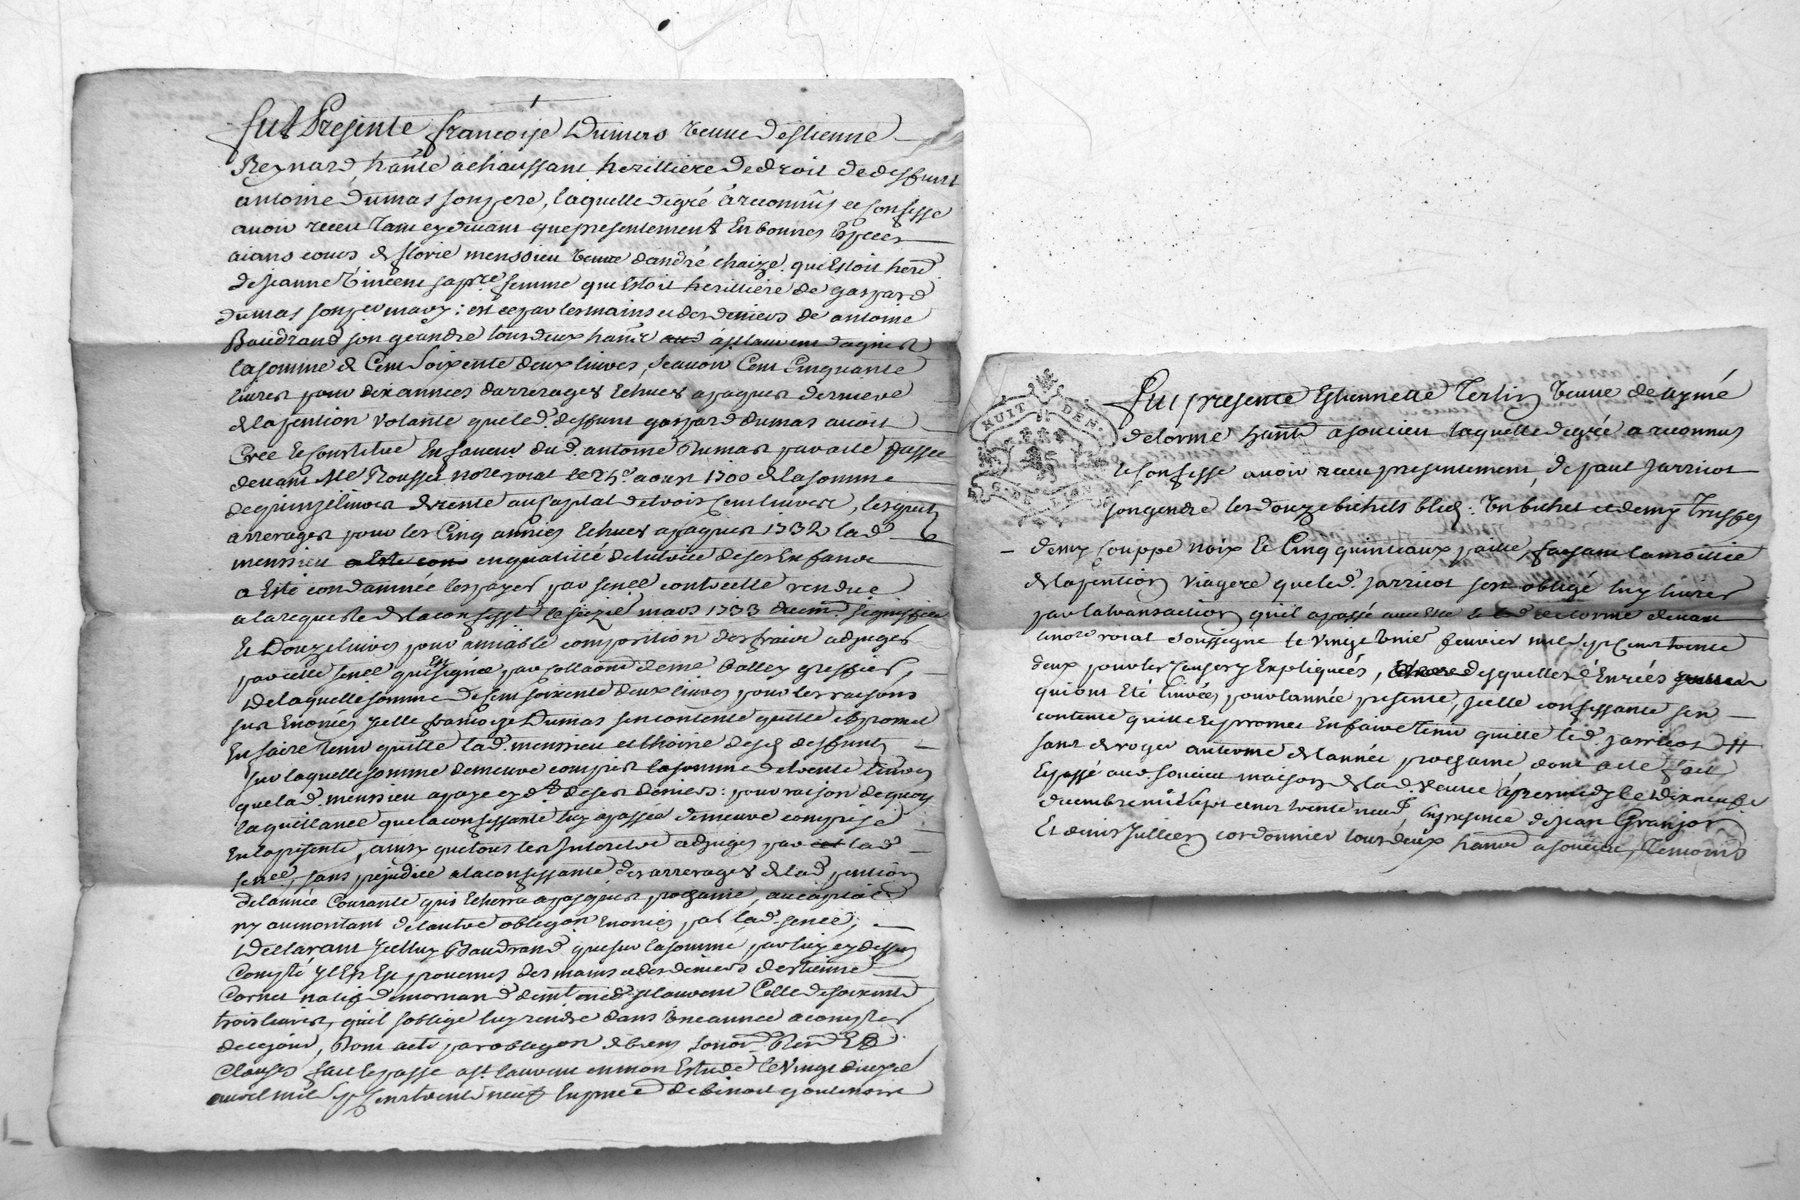 fut Presente francoise Dumas veuve destienne
Reynard, hante a chaussant heritiere de droit de deffunt
antoine Dumas son pere, laquelle degré a reconnus et confesse
avoir receu tant cydevant que presentement En bonnes Especes
aians cours de florie mensieu veuve dandré chaize qui Estoit herd
de jeanne vincent sa pre femme qui Estoit heritiere de gaspard
dumas son per mary : et ce par les mains et des deniers de antoine
Baudrand son geandre tous deux hants a st laurent dagnist
la somme de Cent Soixente deux livres, scavoir Cent Cinquante
livres pour dix années darrerages Echues a paques derniere
de la pention volante que led. deffunt gaspard dumas avoit
Créé Et Constitué En faveur dud. antoine Dumas par acte passé
devant Me Rousset notre roial le 25e aoust 1700 de la somme
de quinze livres de rente au capital de trois Cent livres, lesquels
arrerages pour les Cinq années Echues a paques 1732 lad.
mensieu en qualitté de tutrice de ses Enfants
a Esté condamnée les payer par sence contre elle rendue
a la requeste de la confesste le seize mars 1733
Et Douze livres pour amiable composition des fraix adjugés
par cette sence signée par Collaond deme greffier,
de laquelle somme de Cent soixente deux livres pour les raisons
sus Enoncées, jcelle francoise Dumas sen contente quitte et promet
En faire tenir quitte lad. mensieu et lhoirie desd. deffunts
sur laquelle somme demeure compris la somme de trente livres
que lad. mensieu a paye cy dt de ses deniers : pour raison de quoy
la quittance que la confessante luy a passée demeure comprise
En la presente, ainsy que tous les Interets adjugés par lad.
sence, sans prejudice a la confessante des arrerages de lad. pention
de lannée Courante qui Echerra a paques prochaine, au capital
ny au montant de lautre obligaon Enoncée par lad. sence,
Declarant jcelluy Baudrand que sur la somme par luy cy dessus
Compté jl Est provenus des mains et des deniers destienne
Cornet de mornand demt aud. st laurent Celle de soixente
trois livres, quil soblige luy rendre dans une année a compter
de ce jour, Dont acte par obligaon de biens
Clauses fait Et passé a st laurent en mon Estude le Vingt deuxe
avril mil Sept Cent trente neuf En pnce de benoit goutenoire
HUIT DEN.
G. DE LYON
Fut presente Estiennette Terlin veuve de aymé
delorme hante a soucieu laquelle degré a reconnus
Et confesse avoir receu presentement, de paul jarricot
son gendre les douze bichets bled : Un bichet et demy Truffes
demy couppe noix Et Cinq quintaux paille, faisant la moittié
de la pention viagere que led. jarricot sest obligé luy livrer
par la transaction quil a passé avec Elle delorme devant
le notre roial soussigne le vingt unie fevrier mil sept cent trente
deux pour les Expliquées, desquelles denrées
qui ont Eté livrées pour lannée presente, jcelle confessante sen
contente quitte Et promet En faire tenir quitte led. jarricot #
sans deroger au terme de lannée prochaine dont acte fait
Et passé aud. soucieu maison de lad. veuve apres midy le dix neufe
decembre mil sept cent trente neuf, En presence de jean Granjon
Et denis jullien cordonnier tous deux hants a soucieu, Temoins